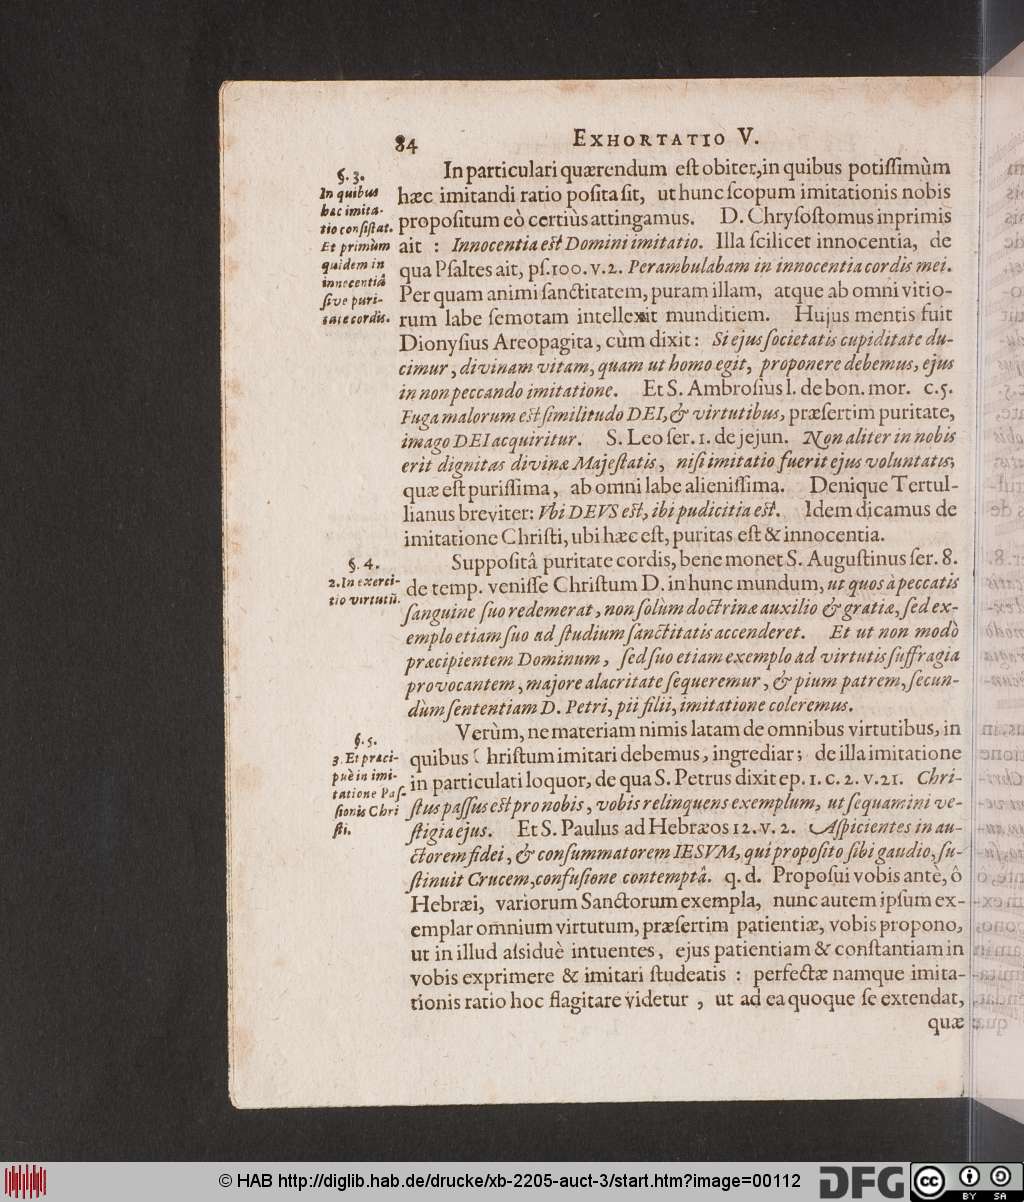 84
EXHORTATIO V.
§. 3.
In quibus
hæc imita-
tio consistat.
Et primùm
quidem in
innocentiâ
sive puri-
tate cordis.
In particulari quærendum est obiter, in quibus potissimùm
hæc imitandi ratio posita sit, ut hunc scopum imitationis nobis
propositum eò certiùs attingamus. D. Chrysostomus inprimis
ait : Innocentia est Domini imitatio. Illa scilicet innocentia, de
qua Psaltes ait, ps.100.v.2. Perambulabam in innocentia cordis mei.
Per quam animi sanctitatem, puram illam, atque ab omni vitio-
rum labe semotam intellexit munditiem. Hujus mentis fuit
Dionysius Areopagita, cùm dixit: Si ejus societatis cupiditate du-
cimur, divinam vitam, quam ut homo egit, proponere debemus, ejus
in non peccando imitatione. Et S. Ambrosius l. de bon. mor. c.5.
Fuga malorum est similitudo DEI, & virtutibus, præsertim puritate,
imago DEI acquiritur. S. Leo ser. 1. de jejun. Non aliter in nobis
erit dignitas divinæ Majestatis, nisi imitatio fuerit ejus voluntatis;
quæ est purissima, ab omni labe alienissima. Denique Tertul-
lianus breviter: Vbi DEVS est, ibi pudicitia est. Idem dicamus de
imitatione Christi, ubi hæc est, puritas est & innocentia.
§. 4.
2. In exerci-
tio virtutũ.
Suppositâ puritate cordis, bene monet S. Augustinus ser. 8.
de temp. venisse Christum D. in hunc mundum, ut quos à peccatis
sanguine suo redemerat, non solùm doctrinæ auxilio & gratiæ, sed ex-
emplo etiam suo ad studium sanctitatis accenderet. Et ut non modò
præcipientem Dominum, sed suo etiam exemplo ad virtutis suffragia
provocantem, majore alacritate sequeremur, & pium patrem, secun-
dùm sententiam D. Petri, pii filii, imitatione coleremus.
§. 5.
3. Et præci-
puè in imi-
tatione Pas-
sionis Chri
sti.
Verùm, ne materiam nimis latam de omnibus virtutibus, in
quibus Christum imitari debemus, ingrediar; de illa imitatione
in particulati loquor, de qua S. Petrus dixit ep. 1. c. 2. v.21. Chri-
stus passus est pro nobis, vobis relinquens exemplum, ut sequamini ve-
stigia ejus. Et S. Paulus ad Hebræos 12. v. 2. Aspicientes in au-
ctorem fidei, & consummatorem IESVM, qui proposito sibi gaudio, su-
stinuit Crucem, confusione contemptâ. q. d. Proposui vobis antè, ô
Hebræi, variorum Sanctorum exempla, nunc autem ipsum ex-
emplar omnium virtutum, præsertim patientiæ, vobis propono,
ut in illud assiduè intuentes, ejus patientiam & constantiam in
vobis exprimere & imitari studeatis : perfectæ namque imita-
tionis ratio hoc flagitare videtur , ut ad ea quoque se extendat,
quæ
© HAB http://diglib.hab.de/drucke/xb-2205-auct-3/start.htm?image=00112
DFG
cc
BY SA